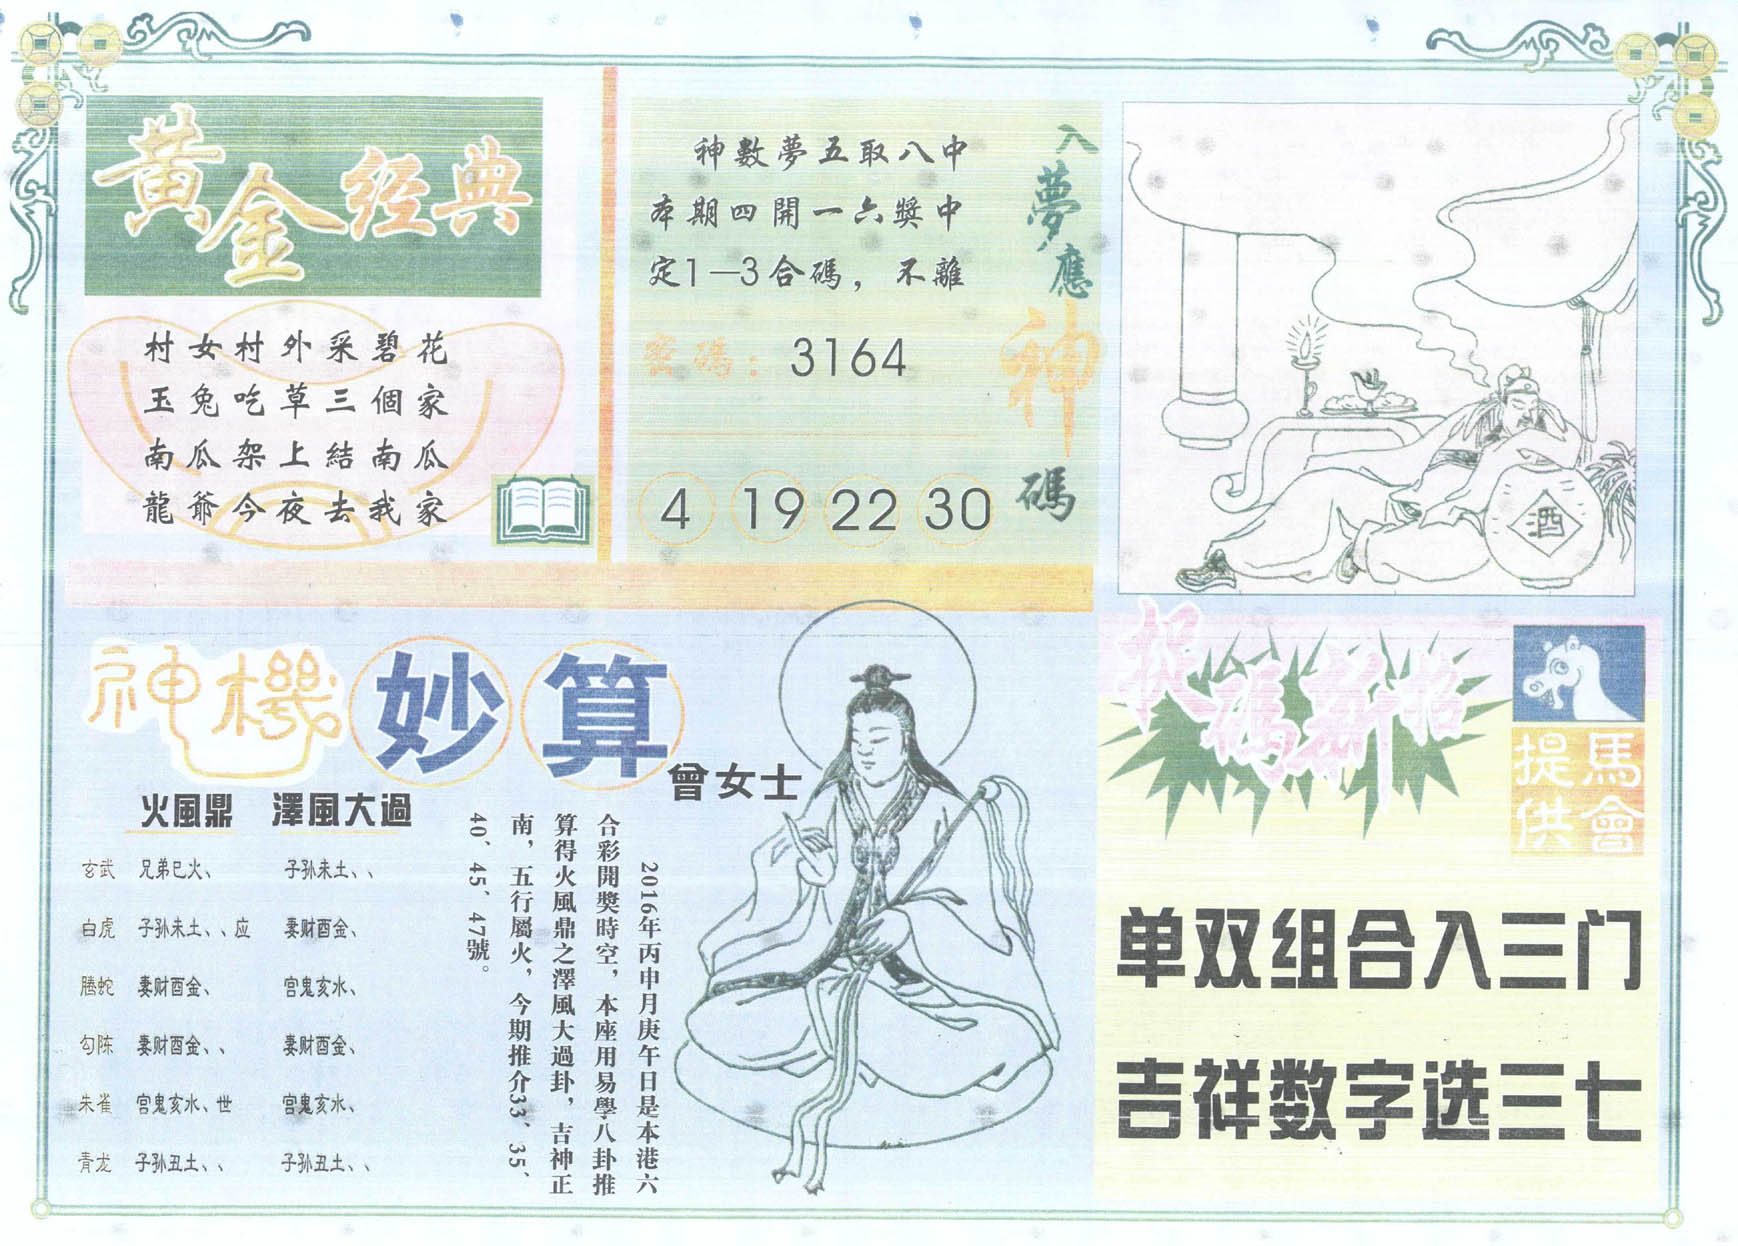 黃金经典
村女村外采碧花
玉兔吃草三個家
南瓜架上結南瓜
龍爺今夜去我家
神數夢五取八中
本期四開一六獎中
定1—3合碼，不離
密碼：3164
4 19 22 30
入夢應神碼
酒
神機妙算
曾女士
火風鼎 澤風大過
玄武 兄弟巳火、 子孙未土、、
白虎 子孙未土、、应 妻财酉金、
腾蛇 妻财酉金、 官鬼亥水、
勾陈 妻财酉金、、 妻财酉金、
朱雀 官鬼亥水、世 官鬼亥水、
青龙 子孙丑土、、 子孙丑土、、
2016年丙申月庚午日是本港六
合彩開獎時空，本座用易學八卦推
算得火風鼎之澤風大過卦，吉神正
南，五行屬火，今期推介33、35、
40、45、47號。
捉碼新招
馬會
提供
单双组合入三门
吉祥数字选三七